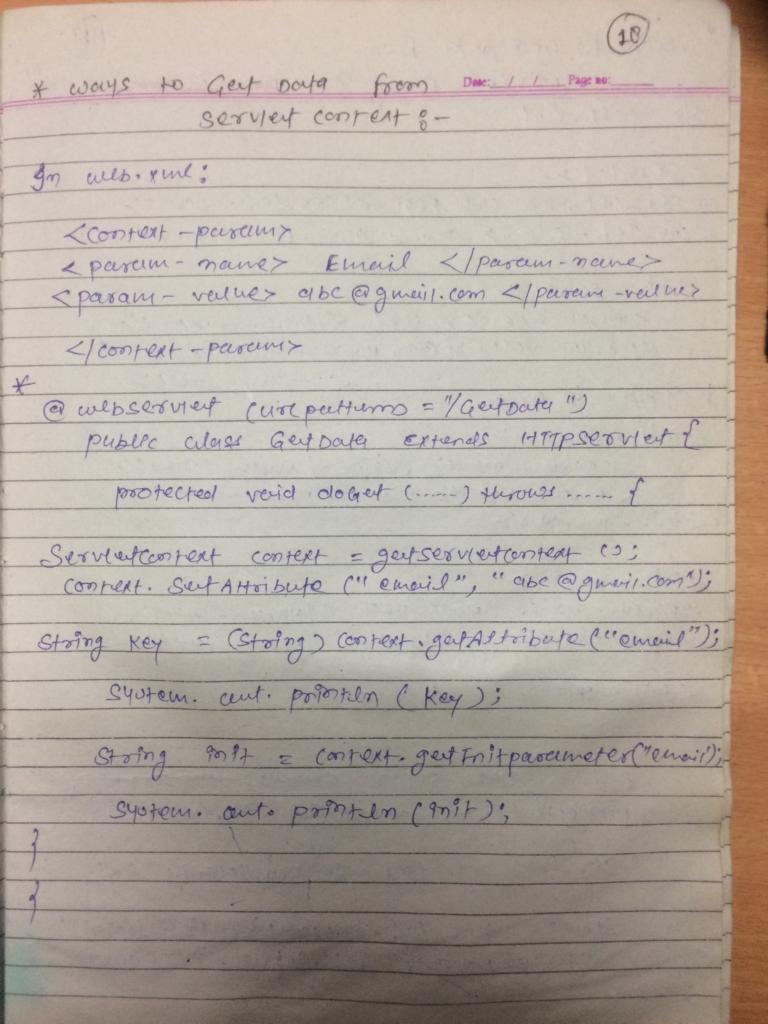 18
* ways to Get Data from
Date: / / Page no:
servlet context :-
In web.xml:
<context-param>
<param-name> Email </param-name>
<param-value> abc@gmail.com </param-value>
</context-param>
*
@webservlet (urlpatterns = "/GetData")
public class GetData extends HTTPServlet {
protected void doGet (......) throws ...... {
ServletContext context = getServletContext ();
context. SetAttribute ("email", "abc@gmail.com");
String key = (String) context.getAttribute ("email");
System. out. println (key);
String init = context.getInitparameter("email);
System. out. println (init);
}
}